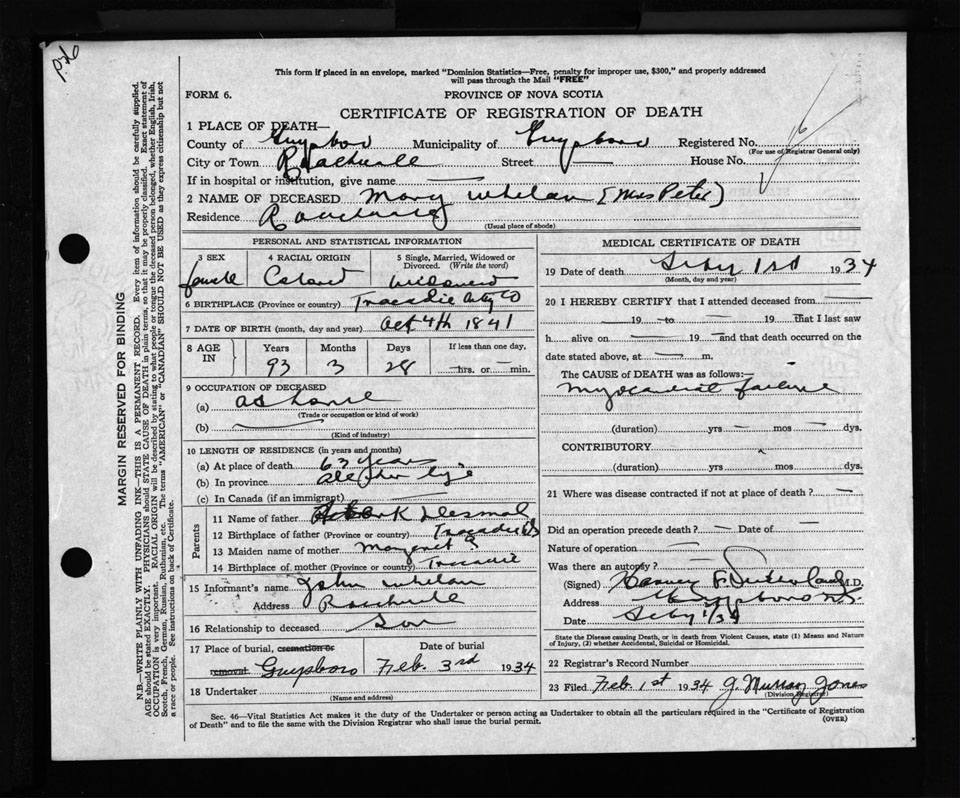 This form if placed in an envelope, marked "Dominion Statistics—Free, penalty for improper use, $300," and properly addressed
will pass through the Mail "FREE"
FORM 6.
PROVINCE OF NOVA SCOTIA
CERTIFICATE OF REGISTRATION OF DEATH
1 PLACE OF DEATH—
County of Guysboro Municipality of Guysboro Registered No.
(For use of Registrar General only)
City or Town Street — House No.
If in hospital or institution, give name —
2 NAME OF DECEASED Mary Whelan (Mrs Peter)
Residence
(Usual place of abode)
PERSONAL AND STATISTICAL INFORMATION
3 SEX 4 RACIAL ORIGIN 5 Single, Married, Widowed or Divorced. (Write the word)
female Colored Widowed
6 BIRTHPLACE (Province or country) Tracadie
7 DATE OF BIRTH (month, day and year) Oct 4th 1841
8 AGE IN Years Months Days If less than one day,
93 3 28 —hrs. or —min.
9 OCCUPATION OF DECEASED
(a) at home
(Trade or occupation or kind of work)
(b)
(Kind of industry)
10 LENGTH OF RESIDENCE (in years and months)
(a) At place of death 63 years
(b) In province all her life
(c) In Canada (if an immigrant)
Parents
11 Name of father Desmal
12 Birthplace of father (Province or country) Tracadie
13 Maiden name of mother Margaret ?
14 Birthplace of mother (Province or country) Tracadie
15 Informant's name John Whelan
Address
16 Relationship to deceased Son
17 Place of burial, cremation or removal Date of burial
Guysboro Feb. 3rd 1934
18 Undertaker
(Name and address)
MEDICAL CERTIFICATE OF DEATH
19 Date of death Feby 1st 1934
(Month, day and year)
20 I HEREBY CERTIFY that I attended deceased from —
— 19 — to — 19 — that I last saw
h alive on — 19 — and that death occurred on the
date stated above, at — m.
The CAUSE of DEATH was as follows:—
Myocardial failure
(duration) yrs — mos — dys.
CONTRIBUTORY
(duration) yrs. mos. — dys.
21 Where was disease contracted if not at place of death? —
Did an operation precede death? — Date of —
Nature of operation
Was there an autopsy?
(Signed) Harvey F. Sutherland M.D.
Address Guysboro N.S.
Date Feby 1/34
State the Disease causing Death, or in death from Violent Causes, state (1) Means and Nature
of Injury, (2) whether Accidental, Suicidal or Homicidal.
22 Registrar's Record Number
23 Filed Feb. 1st 1934 J. Murray Jones
(Division Registrar)
Sec. 46—Vital Statistics Act makes it the duty of the Undertaker or person acting as Undertaker to obtain all the particulars required in the "Certificate of Registration
of Death" and to file the same with the Division Registrar who shall issue the burial permit.
(OVER)
MARGIN RESERVED FOR BINDING
N.B.—WRITE PLAINLY WITH UNFADING INK—THIS IS A PERMANENT RECORD. Every item of information should be carefully supplied.
AGE should be stated EXACTLY. PHYSICIANS should STATE CAUSE OF DEATH in plain terms, so that it may be properly classified. Exact statement of
OCCUPATION is very important. RACIAL ORIGIN will be described by stating to what people or tongue the deceased person belonged, whether English, Irish,
Scotch, French, German, Russian, Ruthenian, etc. The terms "AMERICAN" or "CANADIAN" SHOULD NOT BE USED as they express citizenship but not
a race or people. See instructions on back of Certificate.